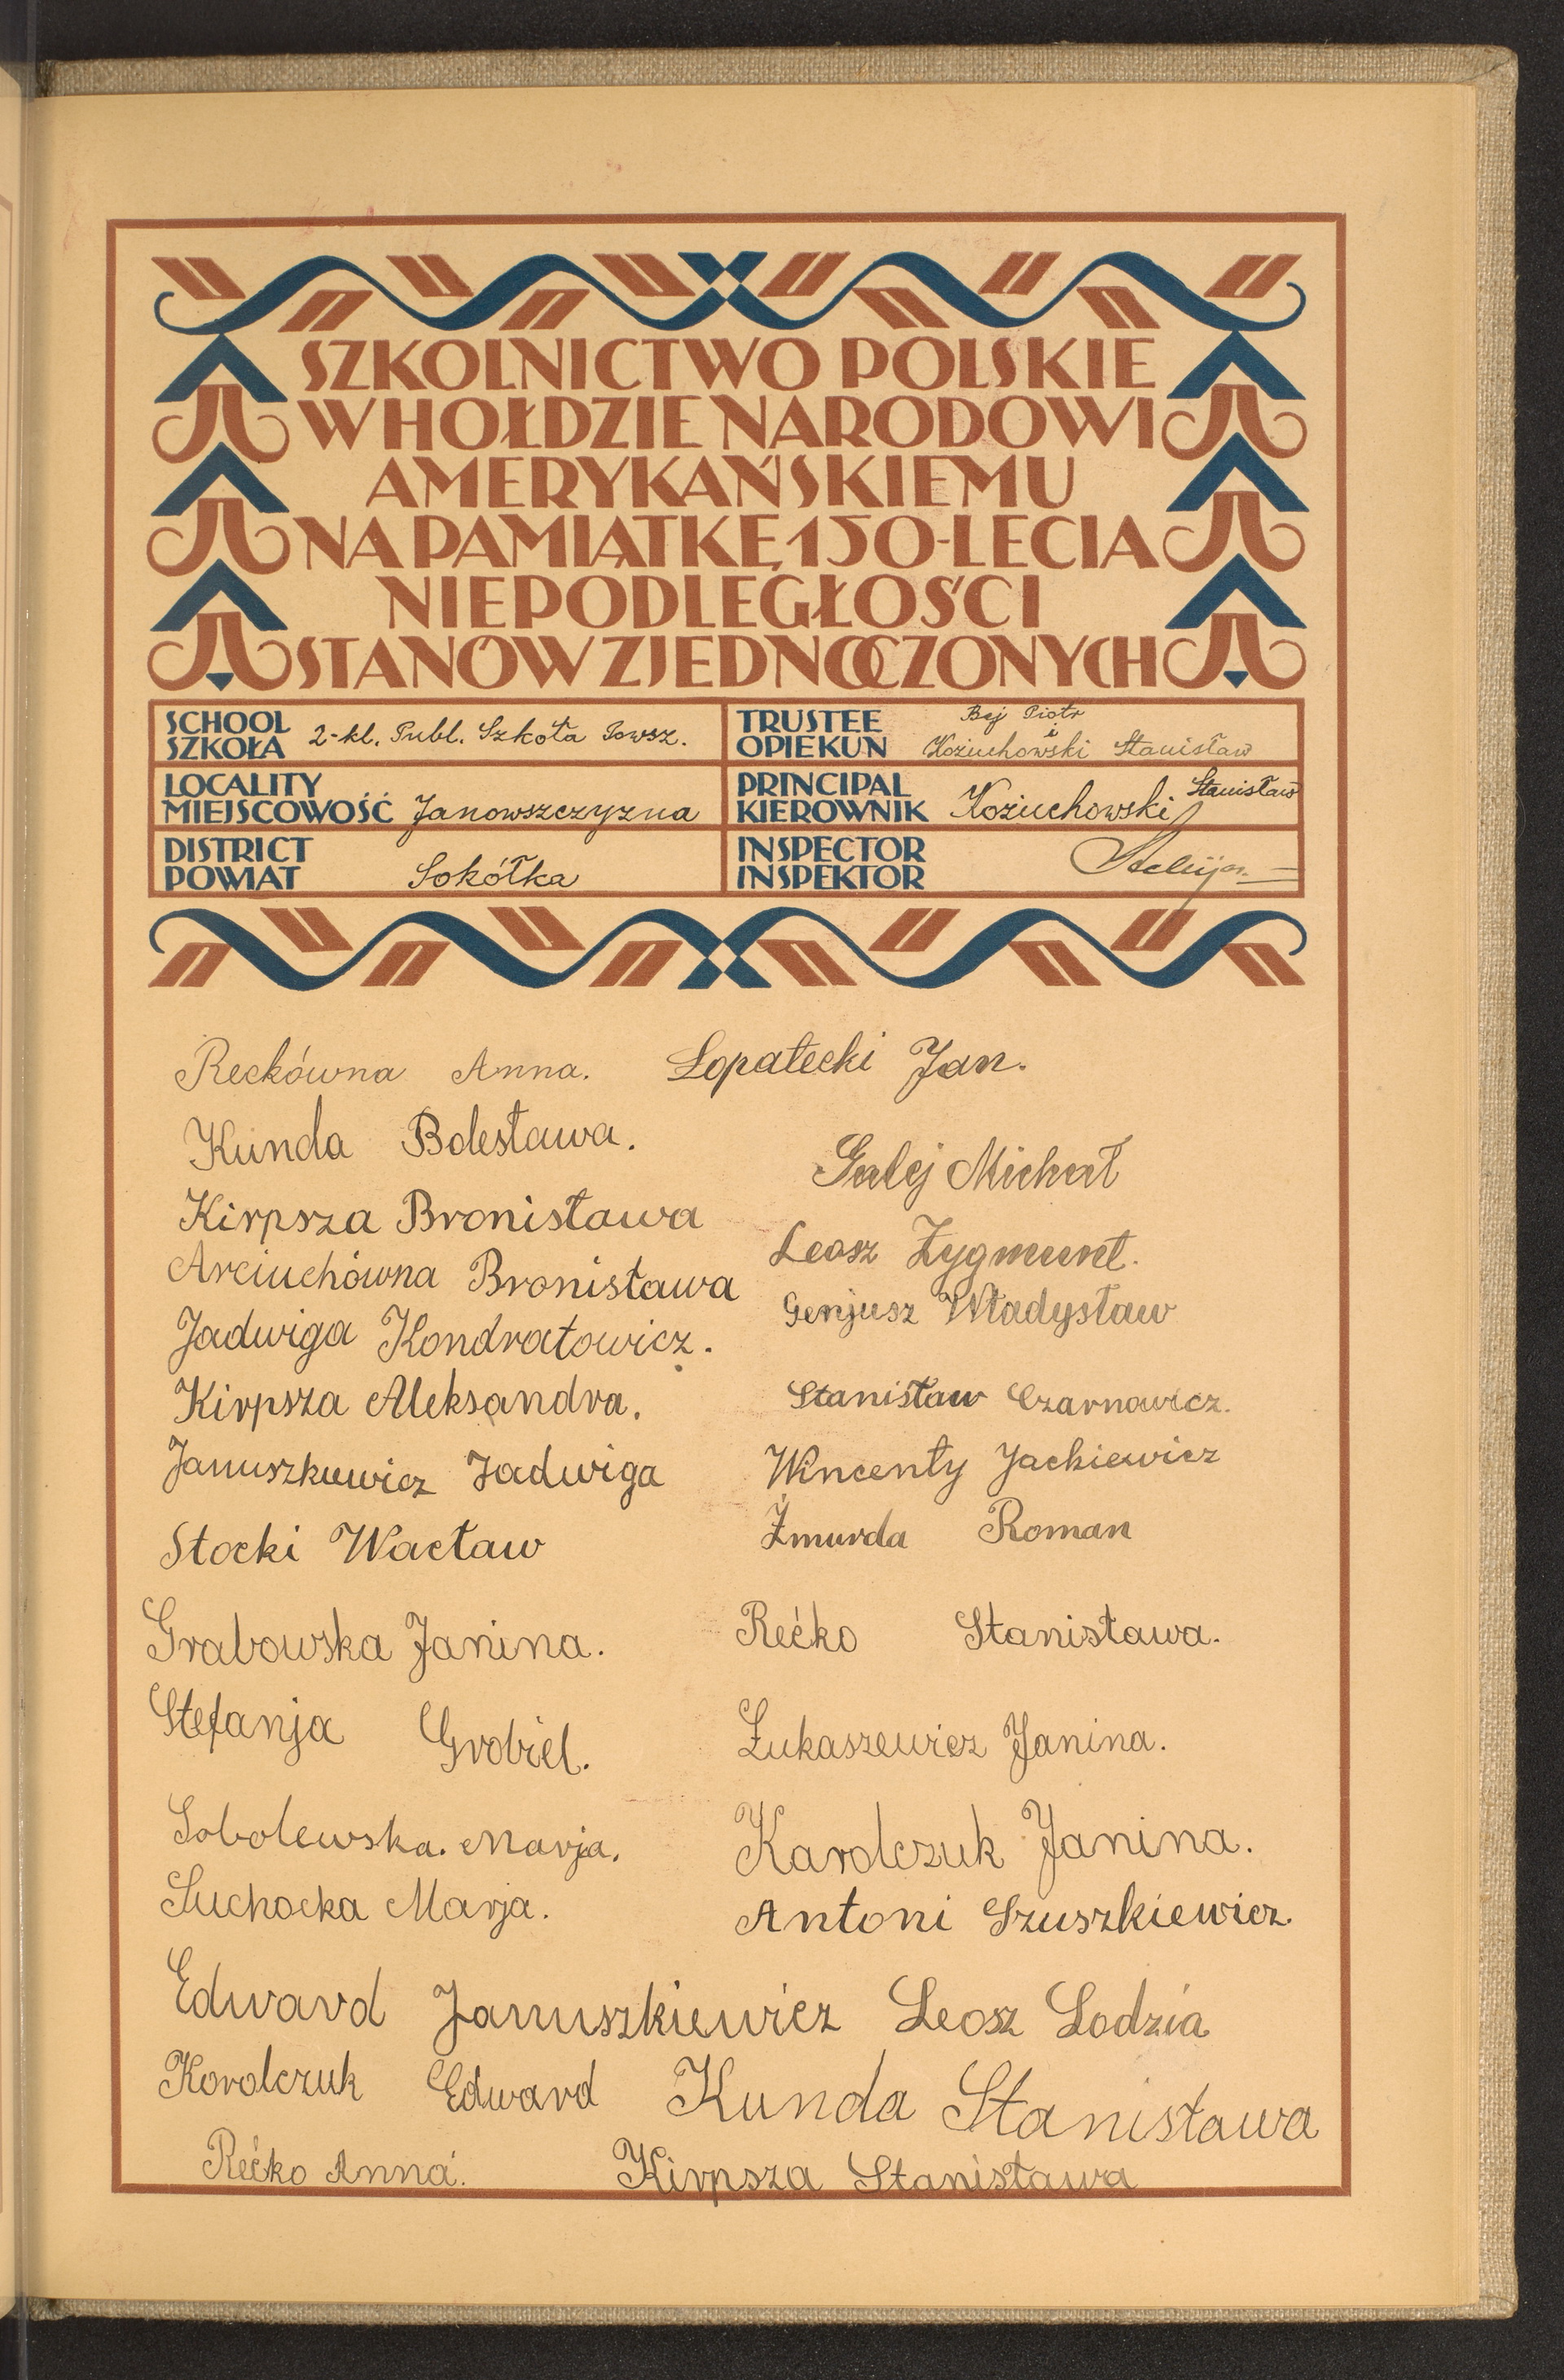 SZKOLNICTWO POLSKIE
W HOŁDZIE NARODOWI
AMERYKAŃSKIEMU
NA PAMIĄTKĘ 150-LECIA
NIEPODLEGŁOŚCI
STANÓW ZJEDNOCZONYCH
SCHOOL
SZKOŁA 2-kl. Publ. Szkoła Powsz.
TRUSTEE
OPIEKUN Bej Piotr
i
Koziuchowski Stanisław
LOCALITY
MIEJSCOWOŚĆ Janowszczyzna
PRINCIPAL
KIEROWNIK Koziuchowski Stanisław
DISTRICT
POWIAT Sokółka
INSPECTOR
INSPEKTOR
Reckówna Anna. Łopatecki Jan.
Kunda Bolesława.
Galej Michał
Kirpsza Bronisława
Leosz Zygmunt.
Arciuchówna Bronisława
Genjusz Władysław
Jadwiga Kondratowicz.
Kirpsza Aleksandra.
Stanisław Czarnowicz.
Januszkiewicz Jadwiga
Wincenty Jackiewicz
Stocki Wacław
Żmurda Roman
Grabowska Janina.
Rećko Stanisława.
Stefanja Grobiel.
Łukaszewicz Janina.
Sobolewska. Marja.
Karolczuk Janina.
Suchocka Marja.
Antoni Szuszkiewicz.
Edward Januszkiewicz Leosz Lodzia
Korolczuk Edward Kunda Stanisława
Rećko Anna. Kirpsza Stanisława